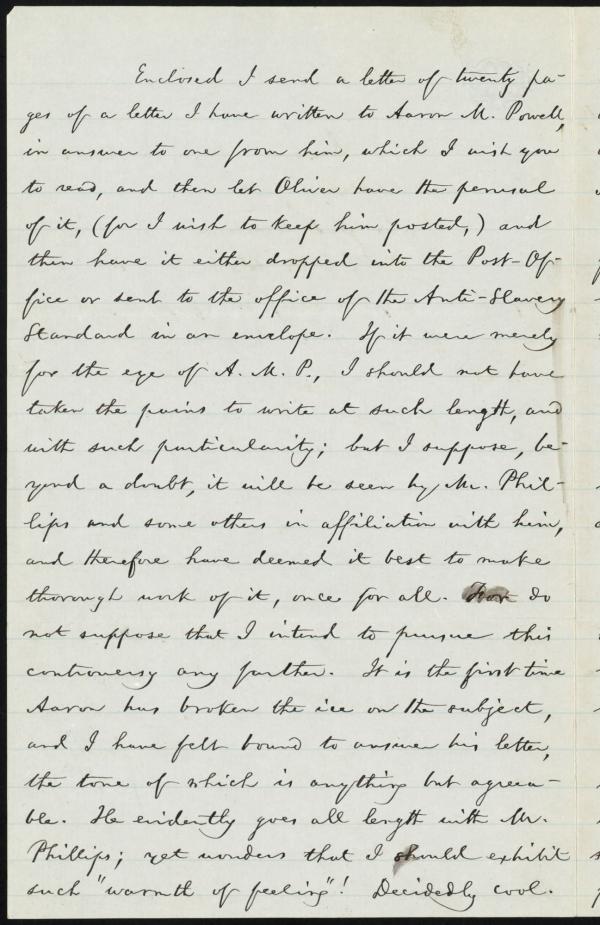 Enclosed I send a letter of twenty pa-
ges of a letter I have written to Aaron M. Powell,
in answer to one from him, which I wish you
to read, and then let Oliver have the perusal
of it, (for I wish to keep him posted,) and
then have it either dropped into the Post-Of-
fice or sent to the office of the Anti-Slavery
Standard in an envelope. If it were merely
for the eye of A. M. P., I should not have
taken the pains to write at such length, and
with such particularity; but I suppose, be-
yond a doubt, it will be seen by Mr. Phil-
lips and some others in affiliation with him,
and therefore have deemed it best to make
thorough work of it, once for all. do
not suppose that I intend to pursue this
controversy any farther. It is the first time
Aaron has broken the ice on the subject,
and I have felt bound to answer his letter,
the tone of which is anything but agreea-
ble. He evidently goes all length with Mr.
Phillips; yet wonders that I should exhibit
such "warmth of feeling"! Decidedly cool.